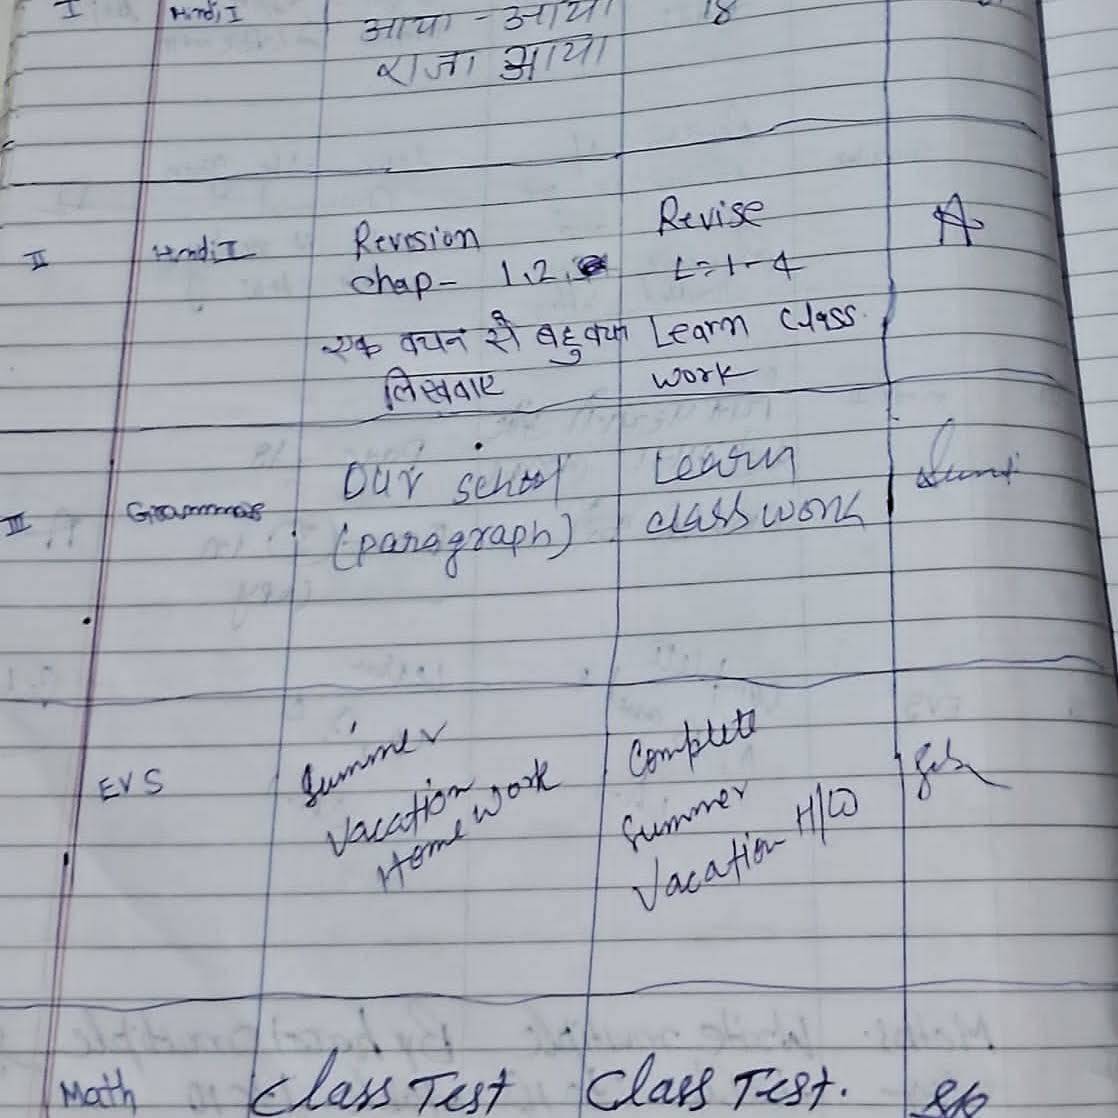 I Hindi I आया - आया 18
राजा आया
II Hindi I Revision Revise A
chap- 1,2, L=1-4
एक वचन सै बहुवचन Learn Class
लिखवाए work
III Grammar Our school Learn
(paragraph) classwork
EVS Summer Complete
Vacation Summer
Home Work Vacation H/W
Math Class Test Class Test.